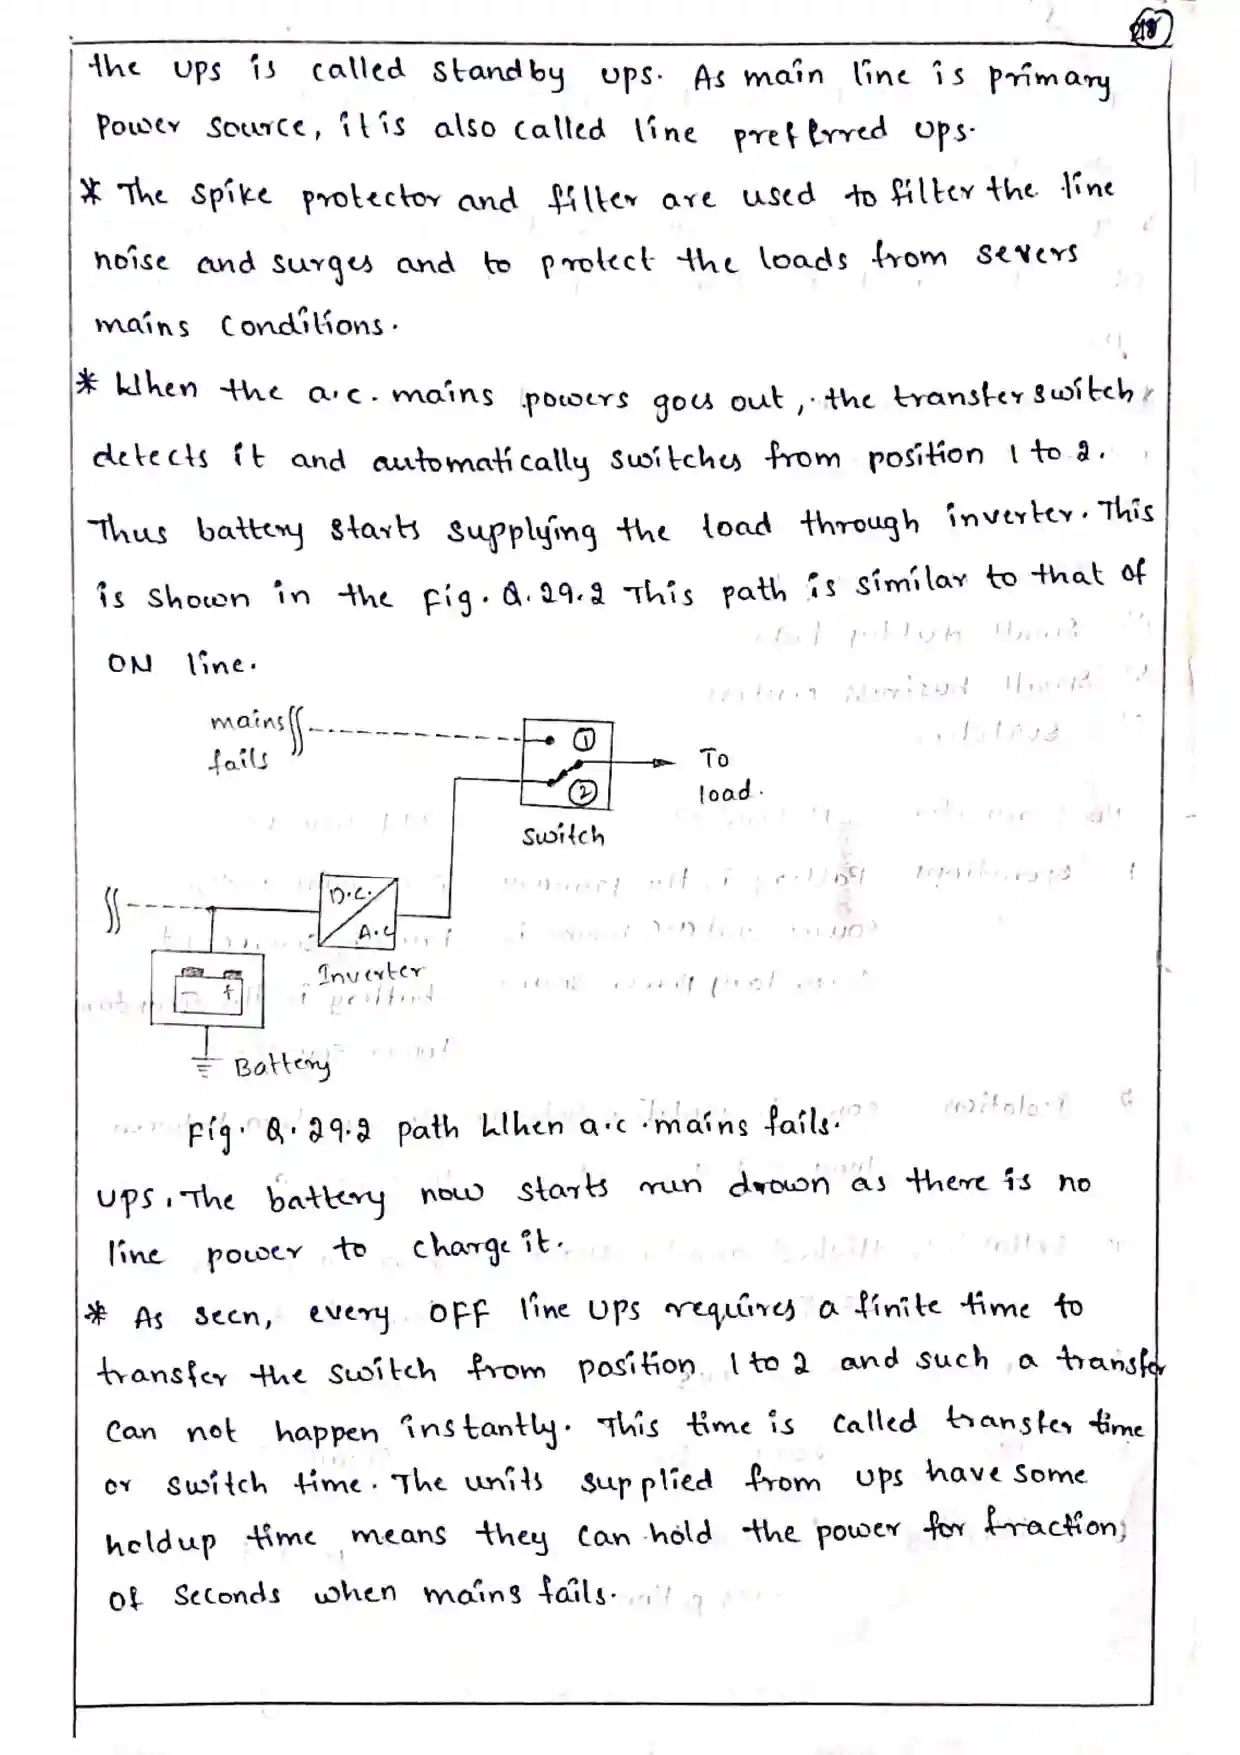 218
the ups is called standby ups. As main line is primary
power source, it is also called line preferred ups.
* The spike protector and filter are used to filter the line
noise and surges and to protect the loads from severs
mains conditions.
* When the a.c. mains powers goes out, the transfer switch
detects it and automatically switches from position 1 to 2.
Thus battery starts supplying the load through inverter. This
is shown in the fig. Q.29.2 This path is similar to that of
ON line.
mains
fails
1
2
To
load.
Switch
D.C.
A.C
Inverter
- +
Battery
Fig. Q.29.2 path When a.c. mains fails.
UPS. The battery now starts run drown as there is no
line power to charge it.
* As seen, every OFF line UPS requires a finite time to
transfer the switch from position 1 to 2 and such a transfer
can not happen instantly. This time is called transfer time
or switch time. The units supplied from ups have some
holdup time means they can hold the power for fraction
of seconds when mains fails.